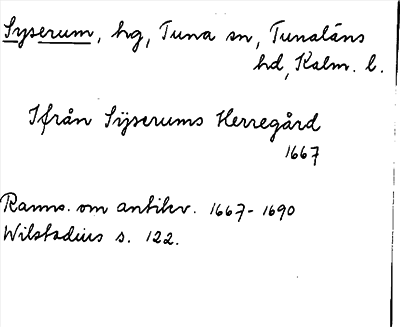 Syserum, hg, Tuna sn, Tunaläns
hd, Kalm. l.
Ifrån Sÿserums Herregård
1667
Ranns. om antikv. 1667-1690
Wilstadius s. 122.